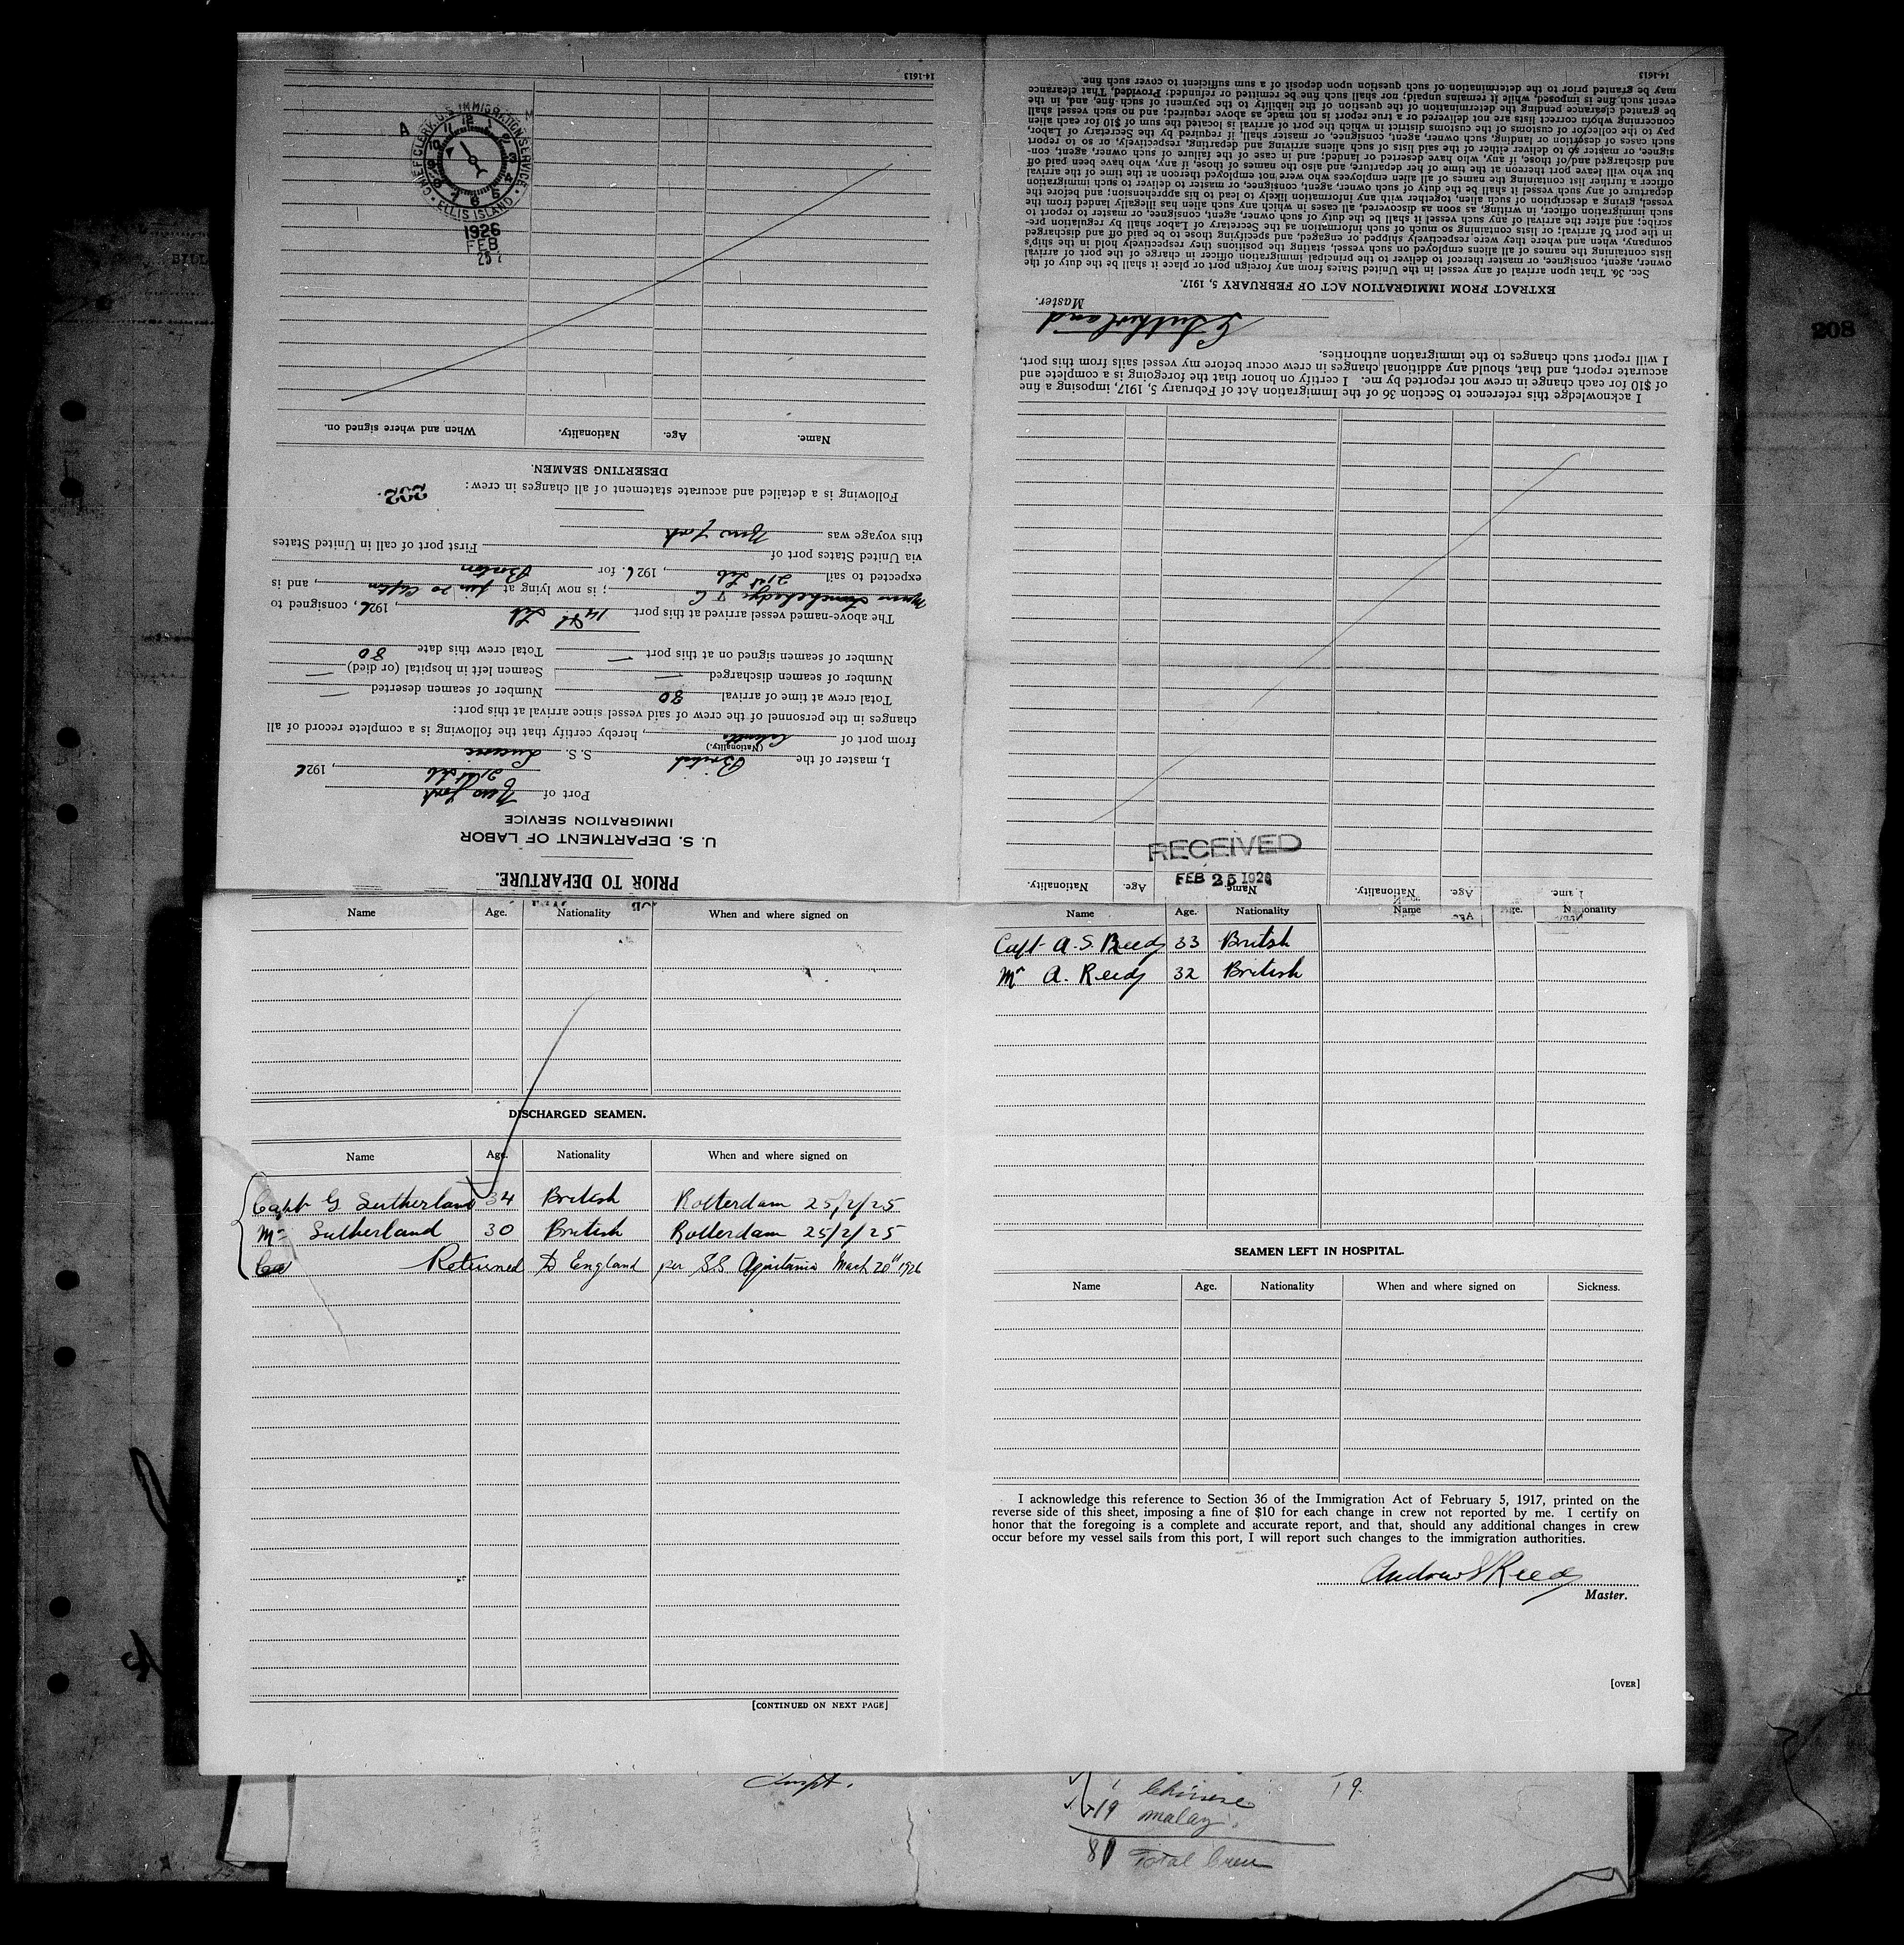 PRIOR TO DEPARTURE.
U. S. DEPARTMENT OF LABOR
IMMIGRATION SERVICE
Port of New York
21st Feb, 1926
I, master of the British S. S.
(Nationality.)
from port of Calcutta, hereby certify that the following is a complete record of all
changes in the personnel of the crew of said vessel since arrival at this port:
Total crew at time of arrival 80 Number of seamen deserted —
Number of seamen discharged — Seamen left in hospital (or died) —
Number of seamen signed on at this port — Total crew this date 80
The above-named vessel arrived at this port 14th Feb, 1926, consigned to
; is now lying at, and is
expected to sail 21st Feb, 1926. for Boston
via United States port of First port of call in United States
this voyage was New York
Following is a detailed and accurate statement of all changes in crew:
202
DESERTING SEAMEN.
Name. Age. Nationality. When and where signed on.
CHIEF CLERK, U.S. IMMIGRATION SERVICE · ELLIS ISLAND ·
A M
12 1 2 3 4 5 6 7 8 9 10 11
1926
FEB
25
14-1613
Name. Age. Nationality. Name Age. Nationality.
RECEIVED
FEB 25 1926
I acknowledge this reference to Section 36 of the Immigration Act of February 5, 1917, imposing a fine
of $10 for each change in crew not reported by me. I certify on honor that the foregoing is a complete and
accurate report, and that, should any additional changes in crew occur before my vessel sails from this port,
I will report such changes to the immigration authorities.
G Sutherland
Master.
EXTRACT FROM IMMIGRATION ACT OF FEBRUARY 5, 1917.
Sec. 36. That upon arrival of any vessel in the United States from any foreign port or place it shall be the duty of the
owner, agent, consignee, or master thereof to deliver to the principal immigration officer in charge of the port of arrival
lists containing the names of all aliens employed on such vessel, stating the positions they respectively hold in the ship's
company, when and where they were respectively shipped or engaged, and specifying those to be paid off and discharged
in the port of arrival; or lists containing so much of such information as the Secretary of Labor shall by regulation pre-
scribe; and after the arrival of any such vessel it shall be the duty of such owner, agent, consignee, or master to report to
such immigration officer, in writing, as soon as discovered, all cases in which any such alien has illegally landed from the
vessel, giving a description of such alien, together with any information likely to lead to his apprehension; and before the
departure of any such vessel it shall be the duty of such owner, agent, consignee, or master to deliver to such immigration
officer a further list containing the names of all alien employees who were not employed thereon at the time of the arrival
but who will leave port thereon at the time of her departure, and also the names of those, if any, who have been paid off
and discharged and of those, if any, who have deserted or landed; and in case of the failure of such owner, agent, con-
signee, or master so to deliver either of the said lists of such aliens arriving and departing, respectively, or so to report
such cases of desertion or landing, such owner, agent, consignee, or master shall, if required by the Secretary of Labor,
pay to the collector of customs of the customs district in which the port of arrival is located the sum of $10 for each alien
concerning whom correct lists are not delivered or a true report is not made as above required; and no such vessel shall
be granted clearance pending the determination of the question of the liability to the payment of such fine, and, in the
event such fine is imposed, while it remains unpaid; nor shall such fine be remitted or refunded; Provided, That clearance
may be granted prior to the determination of such question upon deposit of a sum sufficient to cover such fine.
14-1613
208
Name Age. Nationality When and where signed on
DISCHARGED SEAMEN.
Name Age. Nationality When and where signed on
Capt G Sutherland 34 British Rotterdam 25/2/25
Mrs Sutherland 30 British Rotterdam 25/2/25
Returned To England per SS Aquitania March 20th 1926
[CONTINUED ON NEXT PAGE]
Name Age. Nationality Name Age. Nationality
Capt A. S. Reed 33 British
Mrs A. Reed 32 British
SEAMEN LEFT IN HOSPITAL.
Name Age. Nationality When and where signed on Sickness.
I acknowledge this reference to Section 36 of the Immigration Act of February 5, 1917, printed on the
reverse side of this sheet, imposing a fine of $10 for each change in crew not reported by me. I certify on
honor that the foregoing is a complete and accurate report, and that, should any additional changes in crew
occur before my vessel sails from this port, I will report such changes to the immigration authorities.
Andrew S Reed
Master.
[OVER]
1 Chinese 19
19 malay.
81 Total Crew